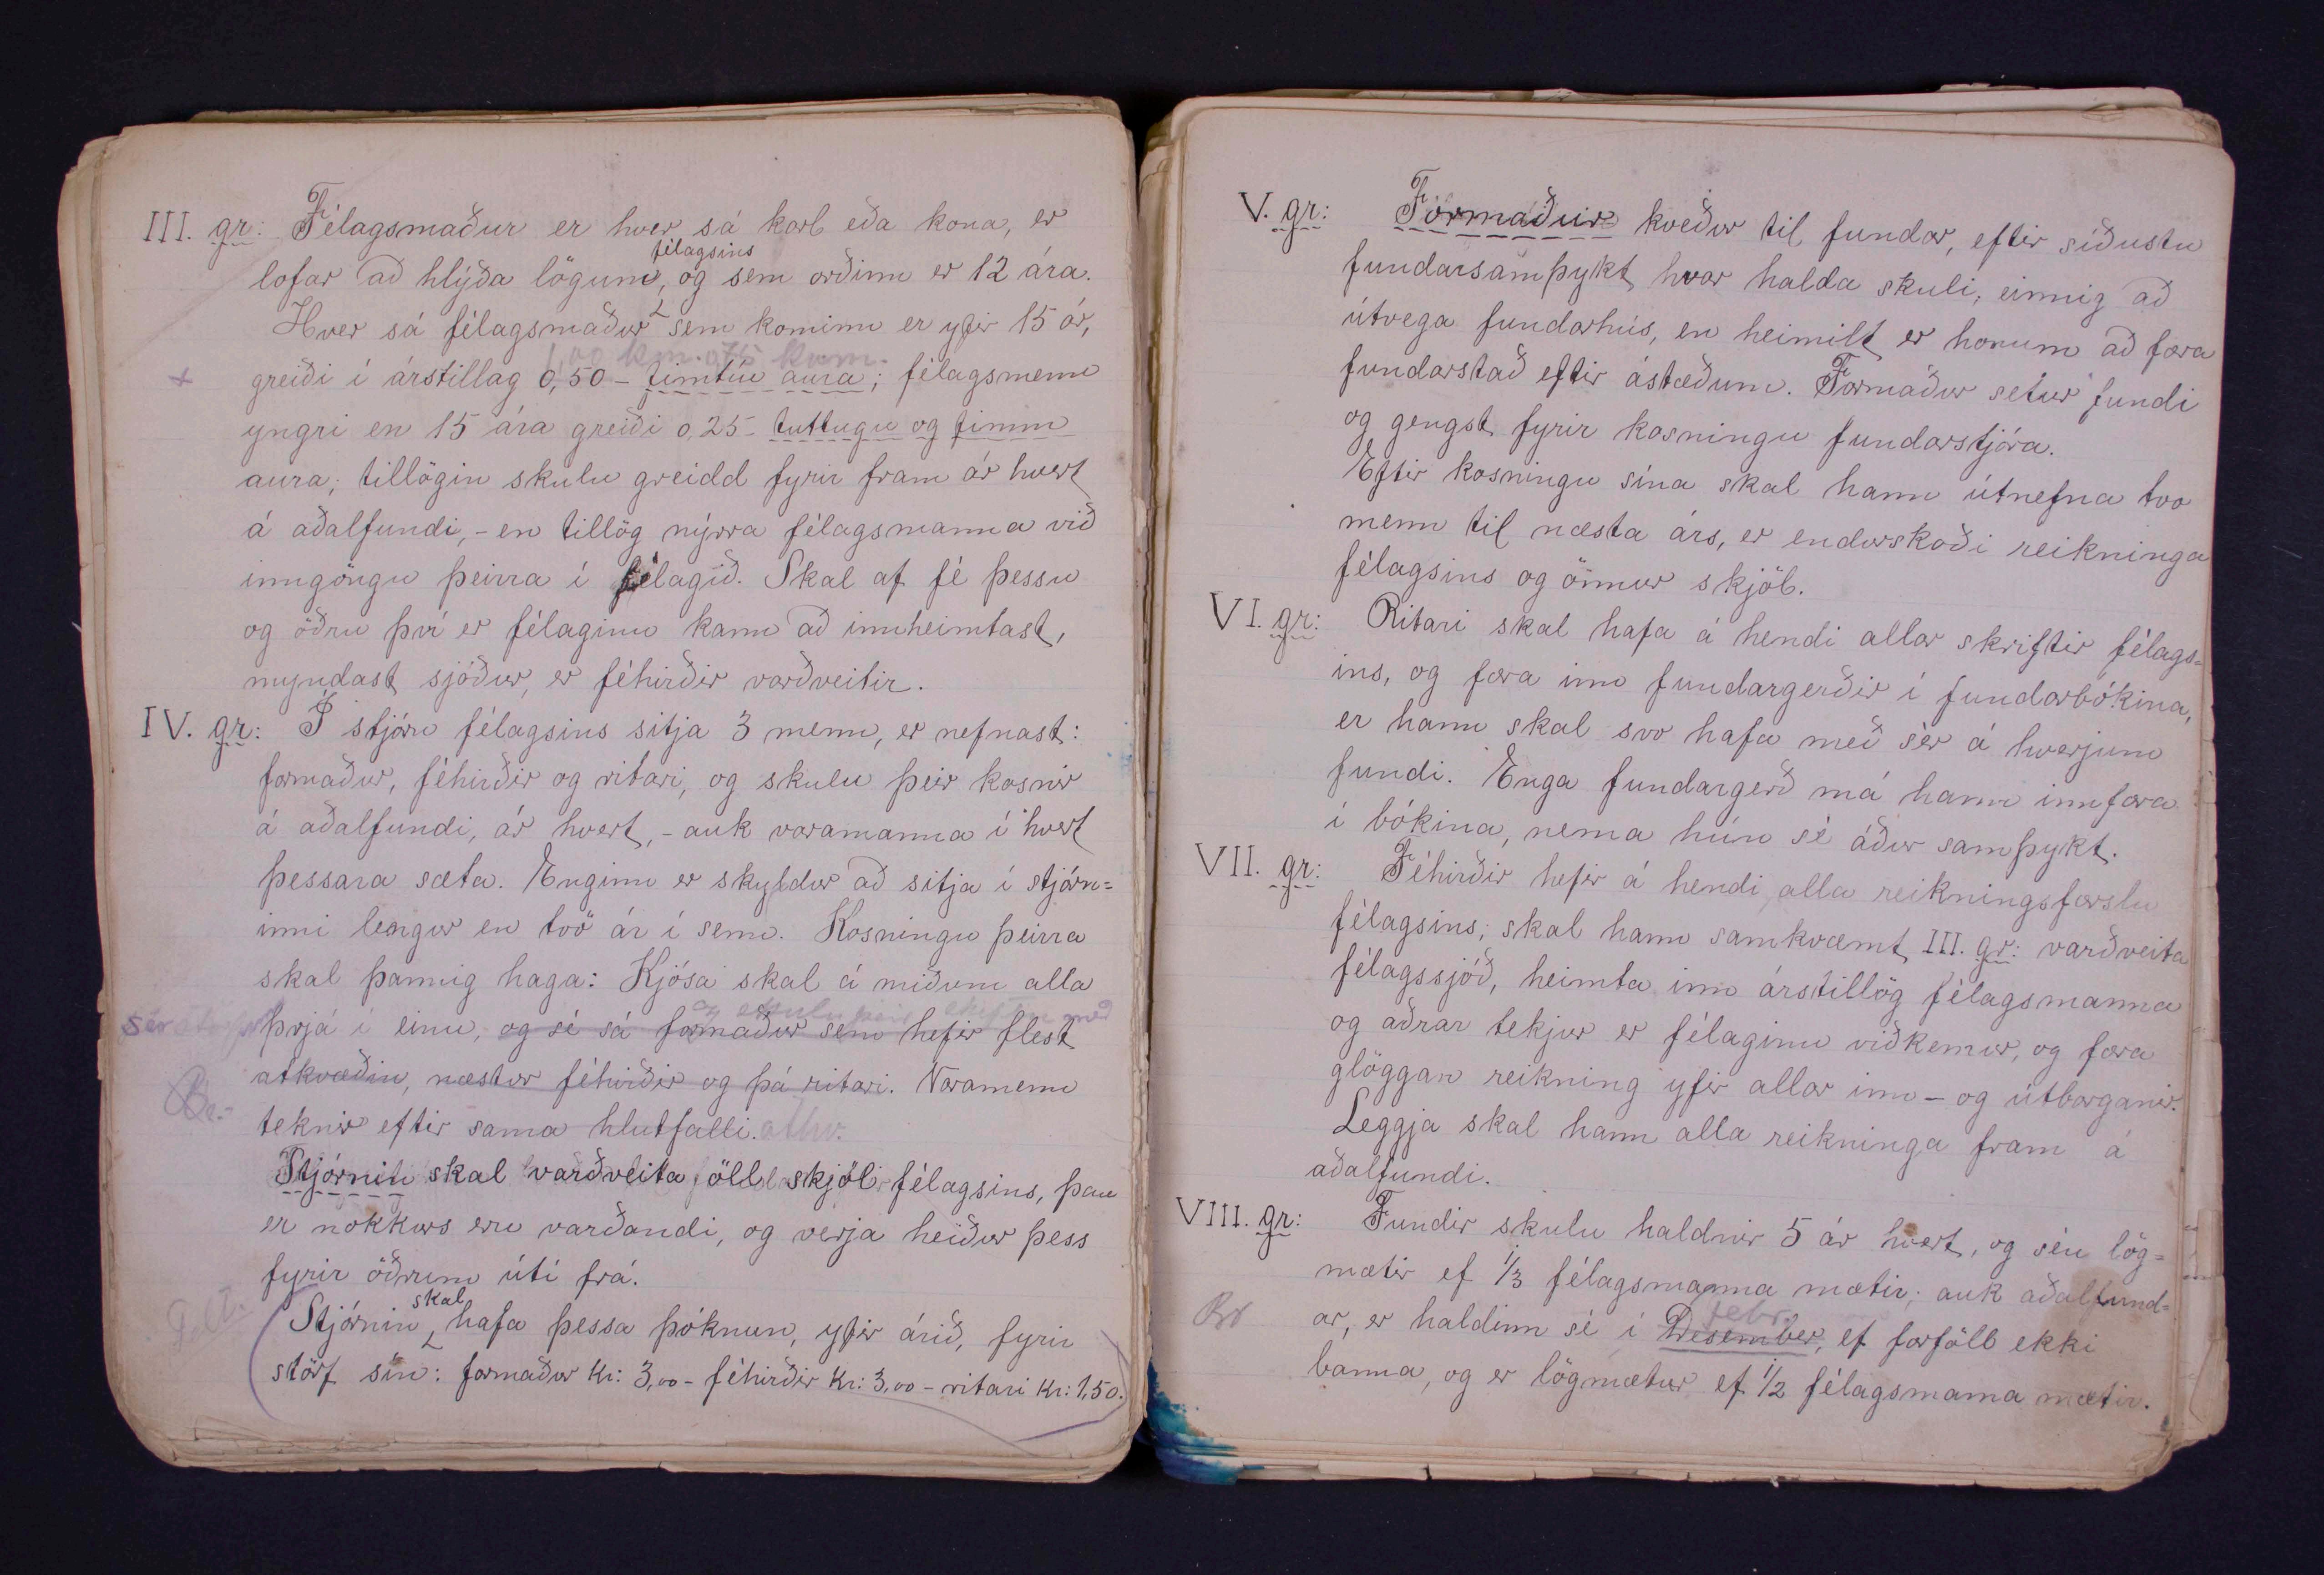 III. gr: Félagsmaður er hver sá karl eða kona, er
félagsins
lofar að hlýða lögum, og sem orðinn er 12 ára.
Hver sá félagsmaður sem kominn er yfir 15 ár,
1,00 km. 0,75 kvm.
+ greiði í árstillag 0,50 - fimtíu aura; félagsmenn
yngri en 15 ára greiði 0,25 - tuttugu og fimm
aura; tillögin skulu greidd fyrir fram ár hvert
á aðalfundi, - en tillög nýrra félagsmanna við
inngöngu þeirra í félagið. Skal af fé þessu
og öðru því er félaginu kann að innheimtast,
myndast sjóður, er féhirðir varðveitir.
IV. gr: Í stjórn félagsins sitja 3 menn, er nefnast:
formaður, féhirðir og ritari, og skulu þeir kosnir
á aðalfundi, ár hvert, - auk varamanna í hvert
þessara sæta. Enginn er skyldur að sitja í stjórn=
inni lengur en tvö ár í senn. Kosningu þeirra
skal þannig haga: Kjósa skal á miðum alla
og skulu þeir skifta með
sér þrjá í einu, og sé sá formaður sem hefir flest
atkvæðin, næstur féhirðir og þá ritari. Varamenn
teknir eftir sama hlutfalli. athv.
Stjórnin skal varðveita öll skjöl félagsins, þau
er nokkurs eru varðandi, og verja heiður þess
fyrir öðrum útí frá.
skal
Stjórnin hafa þessa þóknun, yfir árið, fyrir
störf sín: formaður kr: 3,00 - féhirðir kr: 3,00 - ritari kr: 1,50.
V. gr: Formaður kveður til fundar, eftir síðustu
fundarsamþykt hvar halda skuli, einnig að
útvega fundarhús, en heimilt er honum að færa
fundarstað eftir ástæðum. Formaður setur fundi
og gengst fyrir kosningu fundarstjóra.
Eftir kosningu sína skal hann útnefna tvo
menn til næsta árs, er endurskoði reikninga
félagsins og önnur skjöl.
VI. gr: Ritari skal hafa á hendi allar skriftir félags=
ins, og færa inn fundargerðir í fundarbókina,
er hann skal svo hafa með sér á hverjum
fundi. Enga fundargerð má hann innfæra
í bókina, nema hún sé áður samþykt.
VII. gr: Féhirðir hefir á hendi alla reikningsfærslu
félagsins; skal hann samkvæmt III. gr: varðveita
félagssjóð, heimta inn árstillög félagsmanna
og aðrar tekjur er félaginu viðkemur, og færa
glöggan reikning yfir allar inn - og útborganir.
Leggja skal hann alla reikninga fram á
aðalfundi.
VIII. gr: Fundir skulu haldnir 5 ár hvert, og séu lög=
mætir ef 1/3 félagsmanna mætir; auk aðalfund=
febr.
Br ar, er haldinn sé í Desember, ef forföll ekki
banna, og er lögmætur ef 1/2 félagsmanna mætir.